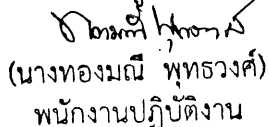 (นางทองมณี พุทธวงศ์)
พนักงานปฏิบัติงาน